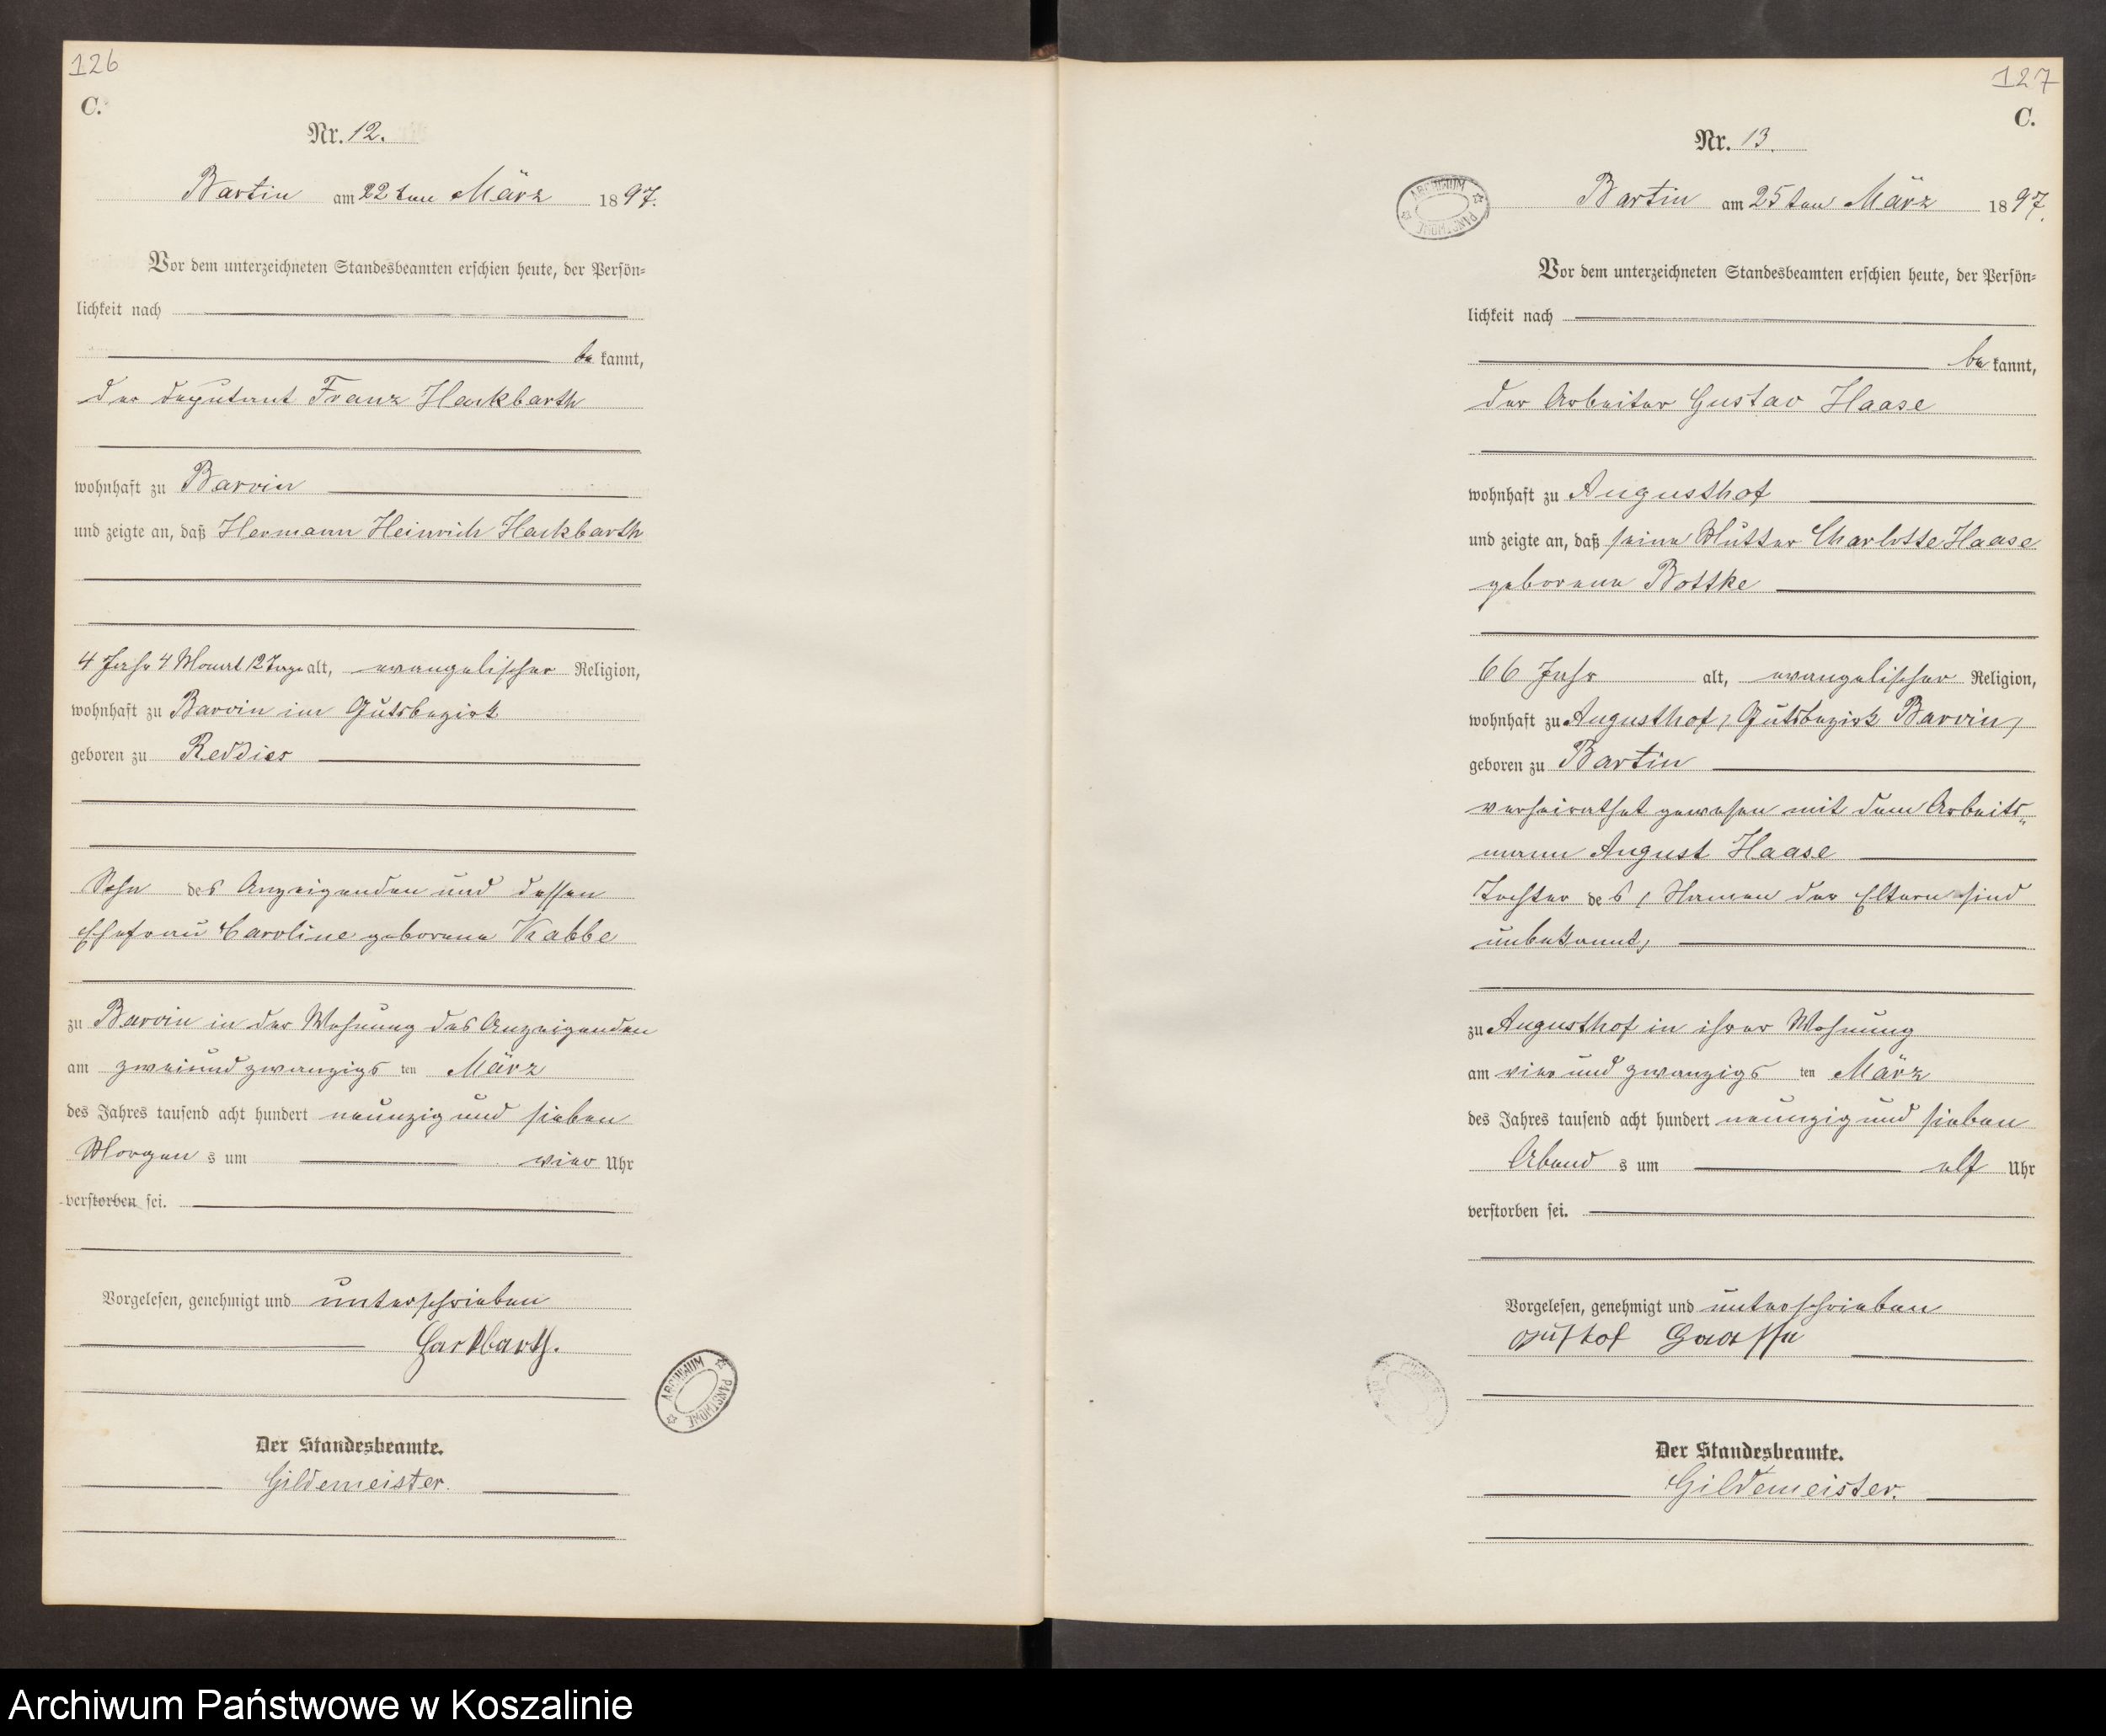 126
C.
Nr. 12.
Bartin am 22ten März 1897.
Vor dem unterzeichneten Standesbeamten erschien heute, der Persön-
lichkeit nach
bekannt,
der Deputant Franz Hackbarth
wohnhaft zu Barvin
und zeigte an, daß Hermann Heinrich Hackbarth
4 Jahr 4 Monat 12 Tage alt, evangelischer Religion,
wohnhaft zu Barvin im Gutsbezirk
geboren zu Reddies
Sohn des Anzeigenden und dessen
Ehefrau Caroline geborene Kabbe
zu Barvin in der Wohnung des Anzeigenden
am zweiundzwanzigsten März
des Jahres tausend acht hundert neunzig und sieben
Morgens um vier Uhr
verstorben sei.
Vorgelesen, genehmigt und unterschrieben
Hackbarth.
Der Standesbeamte.
Gildemeister.
ARCHIWUM PAŃSTWOWE
127
C.
Nr. 13.
ARCHIWUM PAŃSTWOWE
Bartin am 25ten März 1897.
Vor dem unterzeichneten Standesbeamten erschien heute, der Persön-
lichkeit nach
bekannt,
der Arbeiter Gustav Haase
wohnhaft zu Augusthof
und zeigte an, daß seine Mutter Charlotte Haase
geborene Bottke
66 Jahr alt, evangelischer Religion,
wohnhaft zu Augusthof, Gutsbezirk Barvin,
geboren zu Bartin
verheirathet gewesen mit dem Arbeits-
mann August Haase
Tochter des, Namen der Eltern sind
unbekannt,
zu Augusthof in ihrer Wohnung
am vier und zwanzigsten März
des Jahres tausend acht hundert neunzig und sieben
Abends um elf Uhr
verstorben sei.
Vorgelesen, genehmigt und unterschrieben
Gustof Haasse
Der Standesbeamte.
Gildemeister.
Archiwum Państwowe w Koszalinie